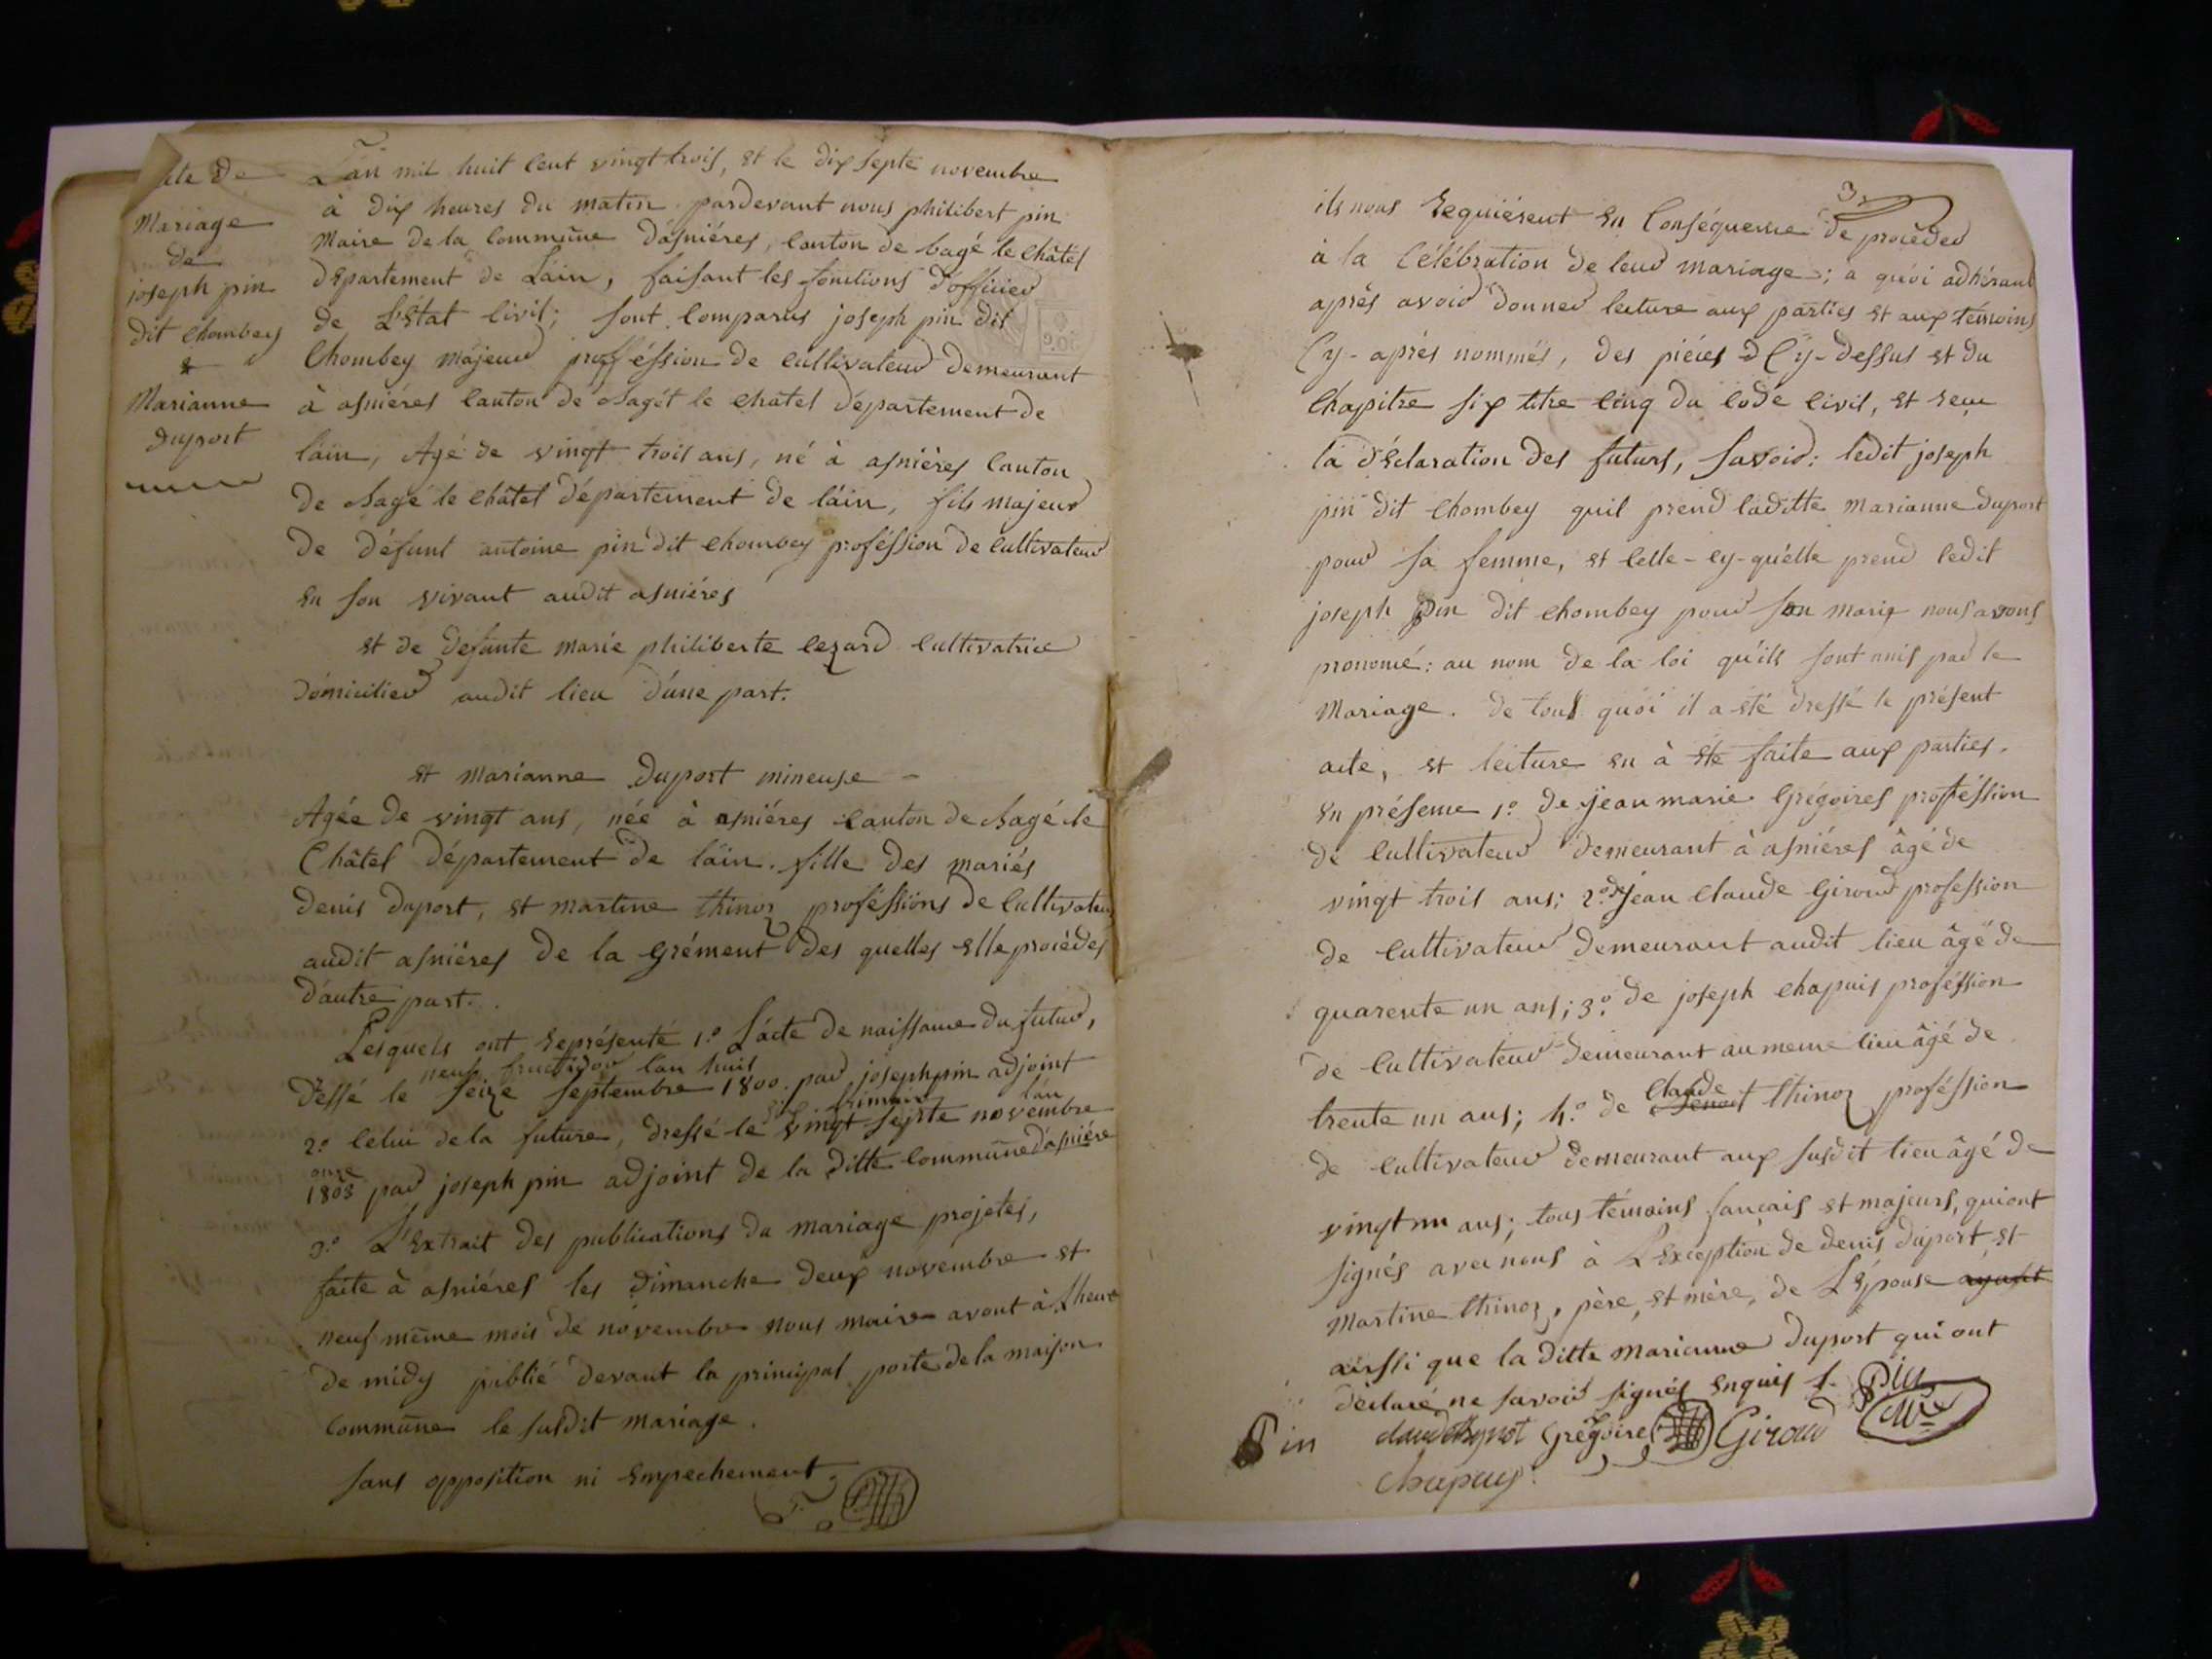 acte de
Mariage
de
joseph pin
dit chombey
&
Marianne
duport
L'an mil huit cent vingt trois, et le dix septe novembre
à dix heures du matin pardevant nous philibert pin
Maire de la Commune d'asniéres, canton de bagé le châtel
département de L'ain, faisant les fonctions d'officier
de L'état civil; sont comparus joseph pin dit
Chombey majeur profféssion de cultivateur demeurant
à asniéres canton de Bagét le châtel département de
l'ain, Agé de vingt trois ans, né à asniéres canton
de Bagé le châtel département de l'ain, fils majeur
de défunt antoine pin dit chombey proféssion de cultivateur
en son vivant audit asniéres
et de défunte marie philiberte lezard cultivatrice
domicilier audit lieu d'une part.
et marianne duport mineuse -
Agée de vingt ans, née à asniéres canton de Bagé le
Châtel département de l'ain. fille des mariés
denis duport, et martine thinoz proféssions de Cultivateur
audit asniéres de la grément des quelles elle procédes
d'autre part.
Lesquels ont représenté 1.o L'acte de naissance du futur,
neuf fructidor l'an huit
dréssé le seize septembre 1800. par joseph pin adjoint
six frimaire l'an
2.o celui de la future, dressé le vingt septe novembre
onze
1803 par joseph pin adjoint de la ditte commune d'asniére
3.o L'Extrait des publications du mariage projetés,
faite à asniéres les dimanche deux novembre et
neuf même mois de novembre nous maire avont à l'heure
de midy publié devant la principal porte de la maison
commune le susdit mariage.
sans opposition ni empechement
3
ils nous requiérent en Conséquence de procéder
à la Célébration de leur mariage; a quoi adhérant
aprés avoir donner lecture aux parties et aux témoins
Cy-aprés nommés, des piéces d Cy-dessus et du
Chapitre six titre cinq du code civil, et reçu
la déclaration des futurs, savoir: ledit joseph
pin dit chombey quil prend laditte marianne duport
pour sa femme, et celle-cy-qu'elle prend ledit
joseph pin dit chombey pour son marie nous avons
prononcé: au nom de la loi qu'ils sont unis par le
Mariage. de tous quoi il a été dressé le présent
acte, et lecture en à été faite aux parties.
En présence 1.o de jean marie Grégoires profféssion
de Cultivateur demeurant à asniéres âgé de
vingt trois ans; 2.o de jean Claude Giroud profession
de Cultivateur demeurant audit lieu âgé de
quarente un ans; 3.o de joseph chapuis proféssion
de Cultivateur demeurant au meme lieu âgé de
Claude
trente un ans; 4.o de thinoz proféssion
de Cultivateur demeurant aux susdit lieu âgé de
vingt un ans; tous témoins francais et majeurs, qui ont
signés avec nous à L'exception de denis duport, et
martine thinoz, père, et mère, de L'épouse ayant
aussi que la ditte marianne duport qui ont
déclaré ne savoir signés enquis f. Pin
Pin claude thynot Grégoire Giroud Mre
Chapuy